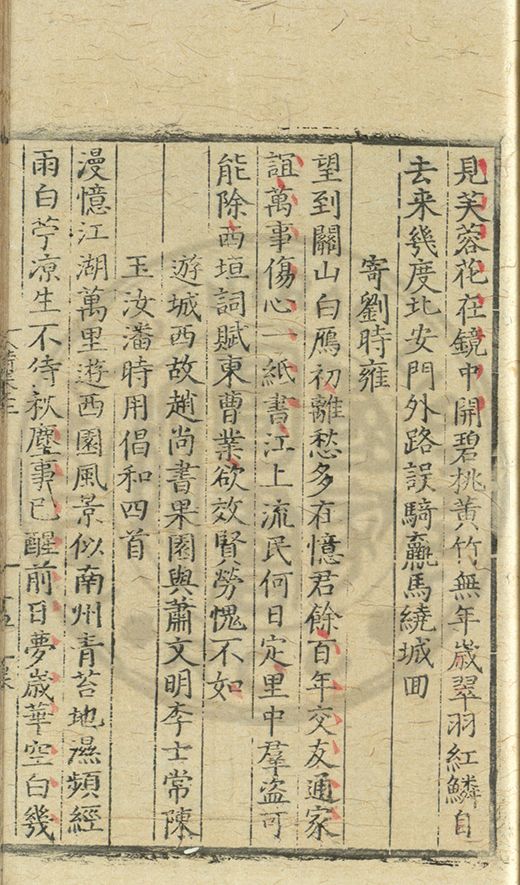 見芙蓉花在鏡中開碧桃黃竹無年歲翠羽紅鱗自
去来幾度北安門外路誤騎羸馬繞城回
寄劉時雍
望到關山白鴈初離愁多在憶君餘百年交友通家
誼萬事傷心一紙書江上流民何日定里中羣盗可
能除西垣詞賦東曹業欲效賢勞愧不如
遊城西故趙尚書果園與蕭文明李士常陳
玉汝潘時用倡和四首
漫憶江湖萬里遊西園風景似南州青苔地濕頻經
雨白苧凉生不待秋塵事已醒前日夢歳華空白幾